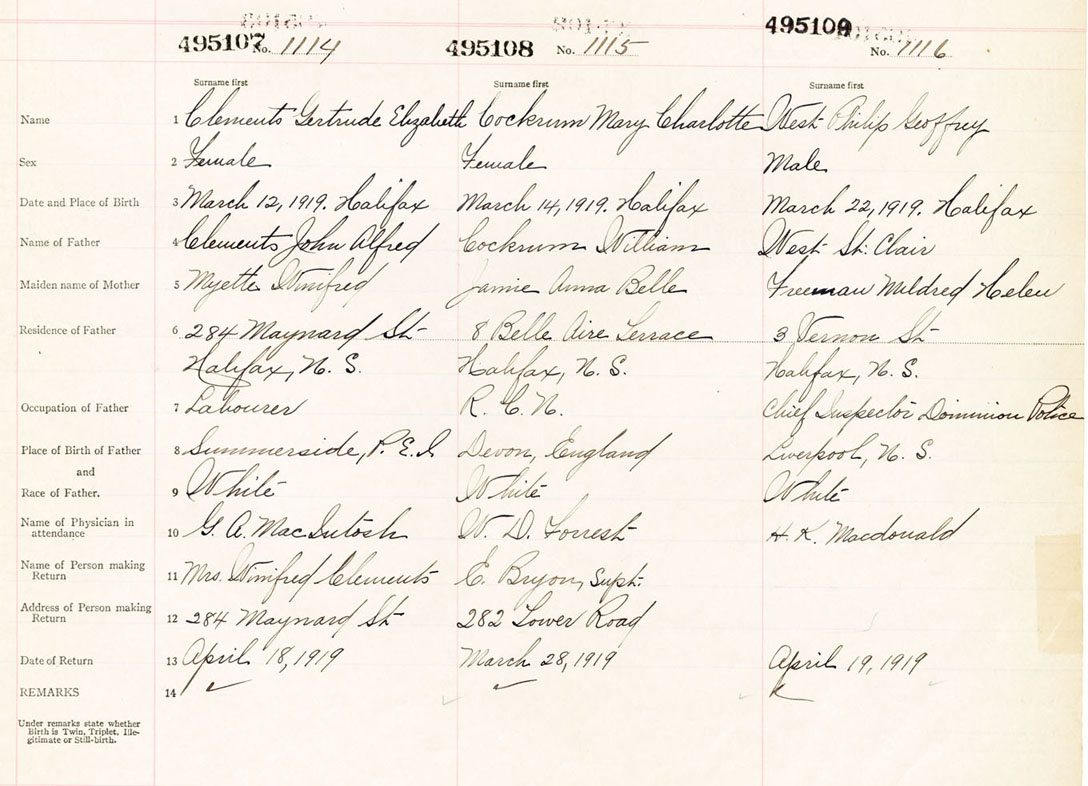 495107 No. 1114 495108 No. 1115 495109 No. 1116
Surname first Surname first Surname first
Name 1 Clements Gertrude Elizabeth Cockrum Mary Charlotte West Philip Geoffrey
Sex 2 Female Female Male
Date and Place of Birth 3 March 12, 1919. Halifax March 14, 1919. Halifax March 22, 1919. Halifax
Name of Father 4 Clements John Alfred Cockrum William West St. Clair
Maiden name of Mother 5 Myette Winifred Jamie Anna Belle Freeman Mildred Helen
Residence of Father 6 284 Maynard St 8 Belle Aire Terrace 3 Vernon St
Halifax, N. S. Halifax, N. S. Halifax, N. S.
Occupation of Father 7 Labourer R. C. N. Chief Inspector Dominion Police
Place of Birth of Father 8 Summerside, P. E. I. Devon, England Liverpool, N. S.
and
Race of Father. 9 White White White
Name of Physician in
attendance 10 G. A. MacIntosh W. D. Forrest H. K. Macdonald
Name of Person making
Return 11 Mrs. Winifred Clements E. Bryon, Supt.
Address of Person making
Return 12 284 Maynard St 282 Tower Road
Date of Return 13 April 18, 1919 March 28, 1919 April 19, 1919
REMARKS 14
Under remarks state whether
Birth is Twin, Triplet, Ille-
gitimate or Still-birth.